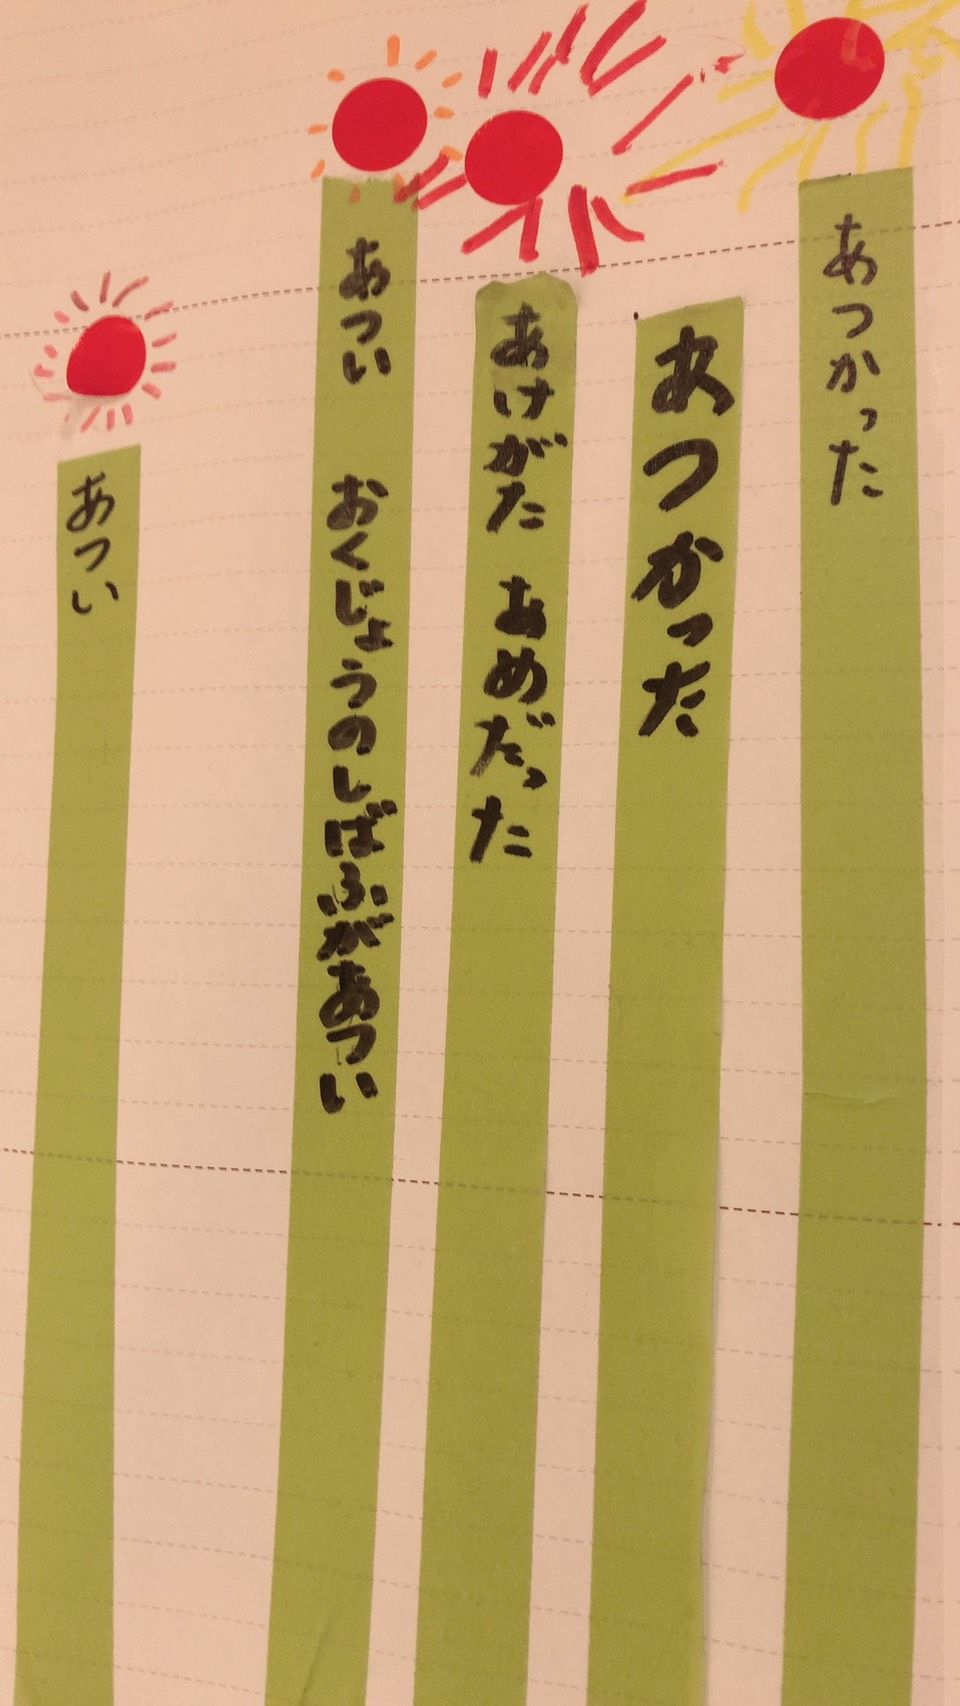 あつかった
あつかった
あけがた あめだった
あつい おくじょうのしばふがあつい
あつい